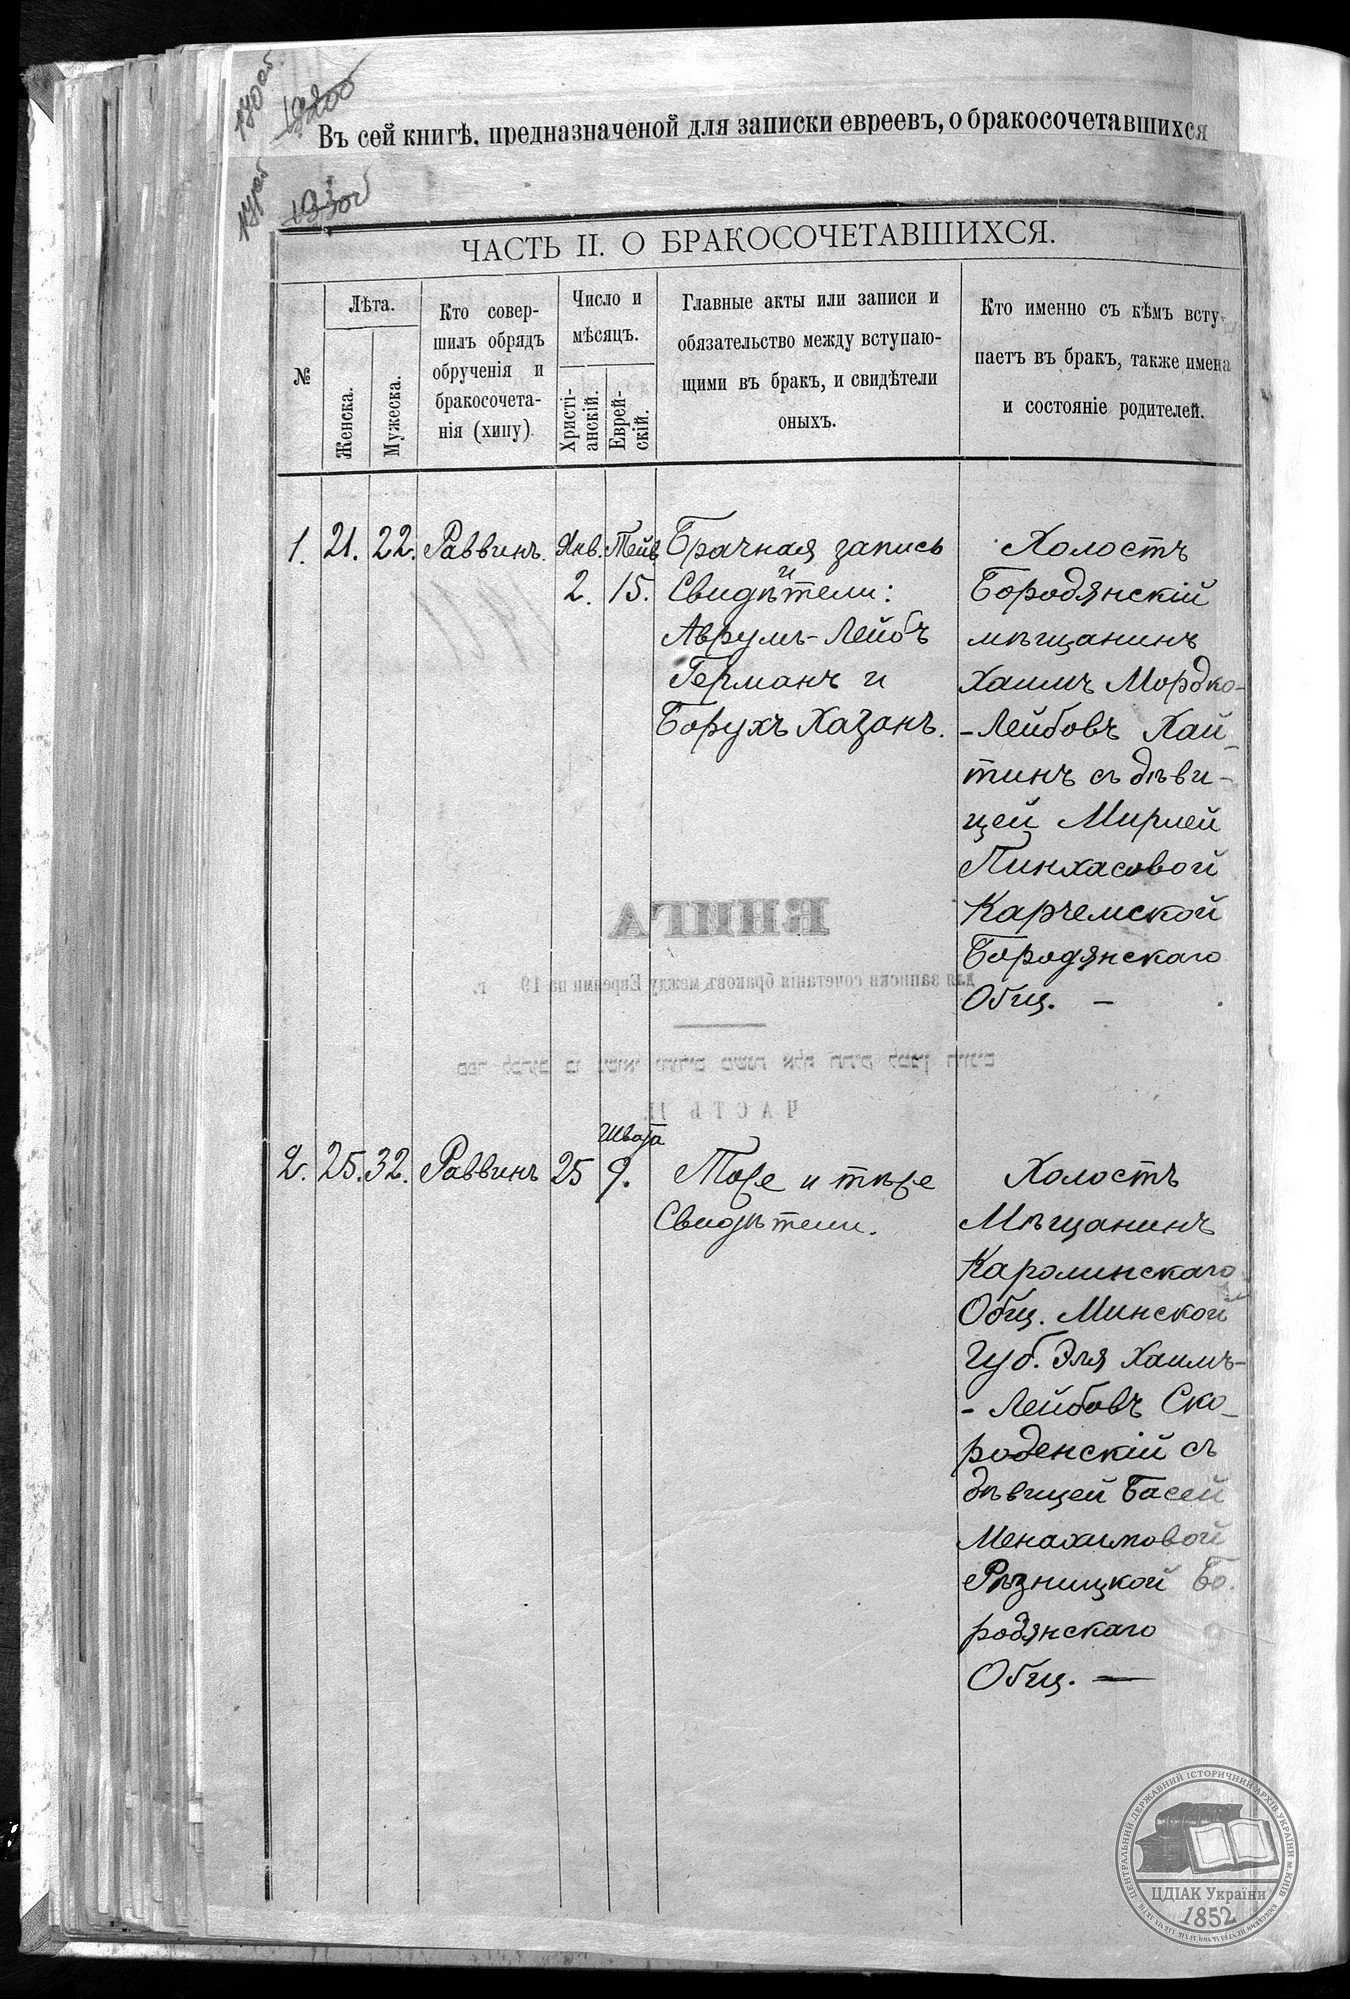 170 об.
Въ сей книгѣ, предназначеной для записки евреевъ, о бракосочетавшихся
171 об
ЧАСТЬ II. О БРАКОСОЧЕТАВШИХСЯ.
№
Лѣта.
Женска.
Мужеска.
Кто совер-
шилъ обрядъ
обрученія и
бракосочета-
нія (хипу).
Число и
мѣсяцъ.
Христі-
анскій.
Еврей-
скій.
Главные акты или записи и
обязательство между вступаю-
щими въ бракъ, и свидѣтели
оныхъ.
Кто именно съ кѣмъ всту-
паетъ въ бракъ, также имена
и состояніе родителей.
1. 21. 22. Раввинъ. Янв. Тейв.
2. 15.
Брачная запись
и
Свидѣтели:
Аврумъ-Лейбъ
Германъ и
Борухъ Хазанъ.
Холостъ
Бородянскій
мѣщанинъ
Хаимъ Мордко-
-Лейбовъ Хай-
тинъ съ дѣви-
цей Мирлей
Пинхасовой
Карчемской
Бородянскаго
Общ. —
КНИГА
для записки сочетанія браковъ между Евреями на 19 г.
ЧАСТЬ II.
Швата
2. 25. 32. Раввинъ 25 9.
Тоже и тѣже
Свидѣтели.
Холостъ
Мѣщанинъ
Каролинскаго
Общ. Минской
Губ. Эля Хаимъ-
- Лейбовъ Ско-
роденскій съ
дѣвицей Басей
Менахимовой
Рѣзницкой Бо-
родянскаго
Общ. —
ЦЕНТРАЛЬНИЙ ДЕРЖАВНИЙ ІСТОРИЧНИЙ АРХІВ УКРАЇНИ м. КИЇВ
ЦДІАК України
1852